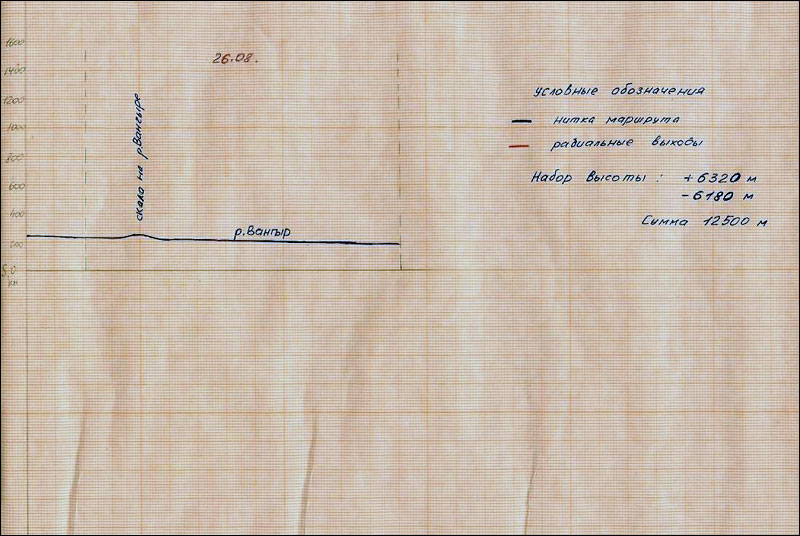 1600
1400
1200
1000
800
600
400
200
S, 0
км
26.08.
скала на р.Вангыре
р.Вангыр
условные обозначения
нитка маршрута
радиальные выходы
Набор высоты : +6320 м
-6180 м
Сумма 12500 м